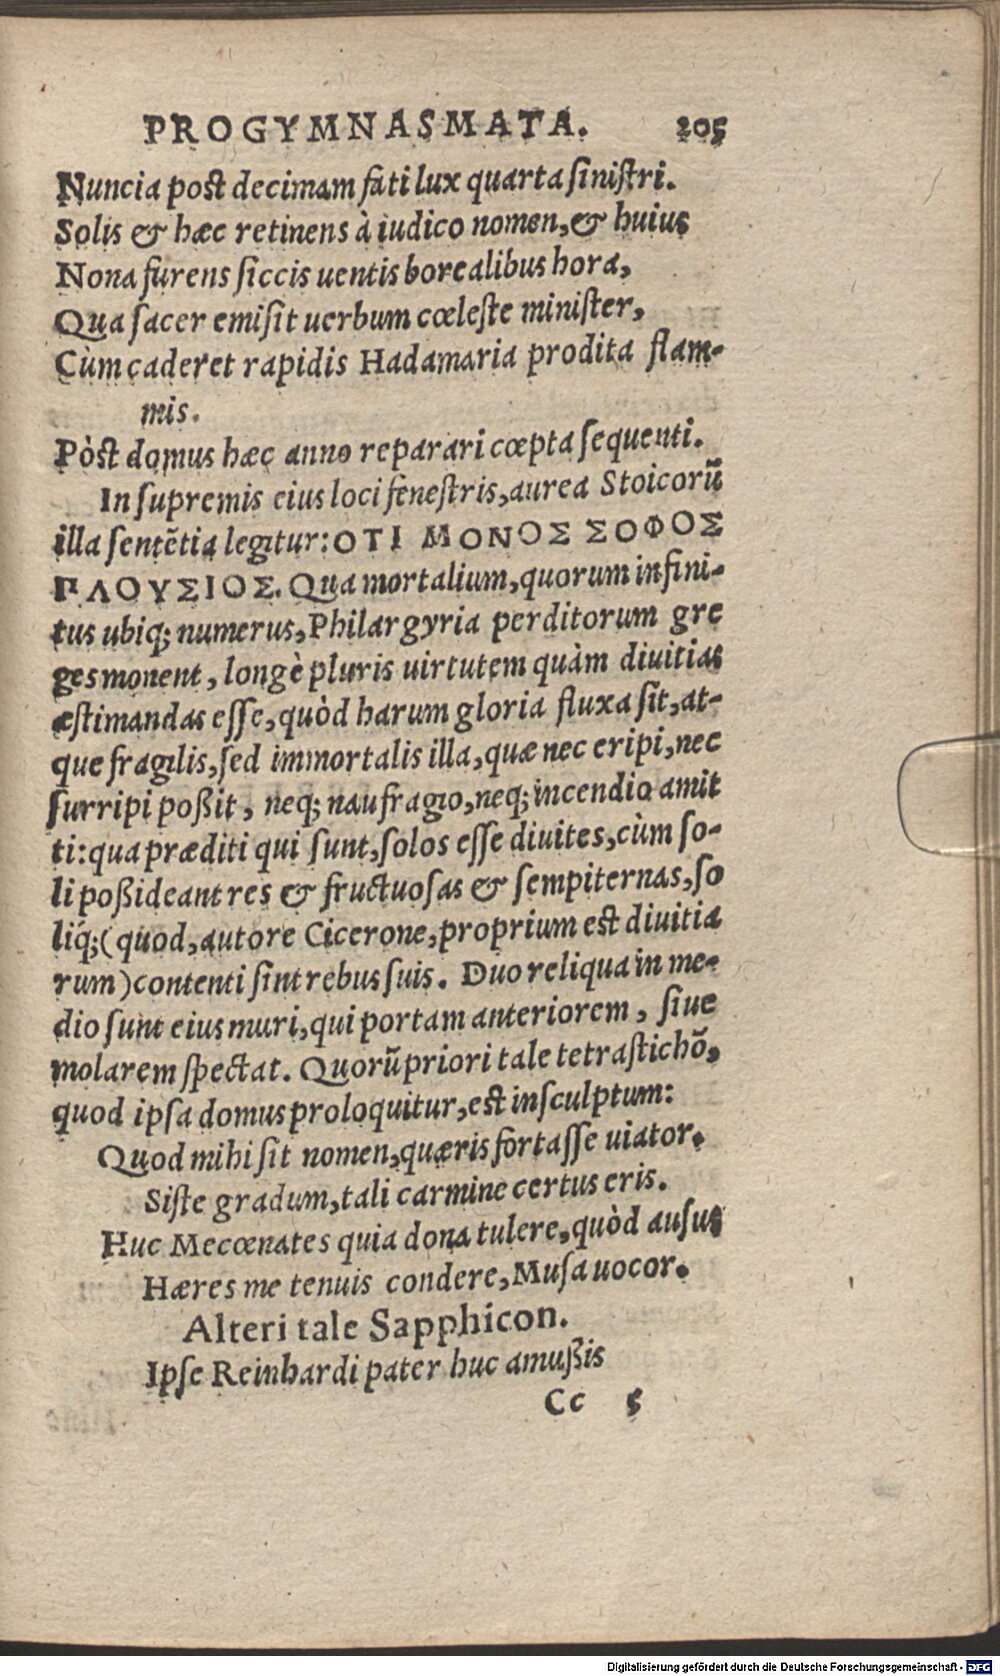 PROGYMNASMATA. 205
Nuncia post decimam fati lux quarta sinistri.
Solis & hæc retinens à iudico nomen,& huius
Nona furens siccis uentis borealibus hora,
Qua sacer emisit uerbum cœleste minister,
Cùm caderet rapidis Hadamaria prodita flam-
mis.
Pòst domus hæc anno reparari cœpta sequenti.
In supremis eius loci fenestris, aurea Stoicorũ
illa sentẽtia legitur: ΟΤΙ ΜΟΝΟΣ ΣΟΦΟΣ
ΠΛΟΥΣΙΟΣ. Qua mortalium, quorum infini-
tus ubiq; numerus, Philargyria perditorum gre
ges monent, longè pluris uirtutem quàm diuitias
æstimandas esse, quòd harum gloria fluxa sit, at-
que fragilis, sed immortalis illa, quæ nec eripi, nec
surripi poßit, neq; naufragio, neq; incendio amit
ti: qua præditi qui sunt, solos esse diuites, cùm so-
li poßideant res & fructuosas & sempiternas, so
liq́;( quod, autore Cicerone, proprium est diuitia
rum) contenti sint rebus suis. Duo reliqua in me-
dio sunt eius muri, qui portam anteriorem, siue
molarem spectat. Quorũ priori tale tetrastichõ,
quod ipsa domus proloquitur, est insculptum:
Quod mihi sit nomen, quæris fortasse uiator.
Siste gradum, tali carmine certus eris.
Huc Mecœnates quia dona tulere, quòd ausus
Hæres me tenuis condere, Musa uocor.
Alteri tale Sapphicon.
Ipse Reinhardi pater huc amußis
Cc 5
Digitalisierung gefördert durch die Deutsche Forschungsgemeinschaft - DFG